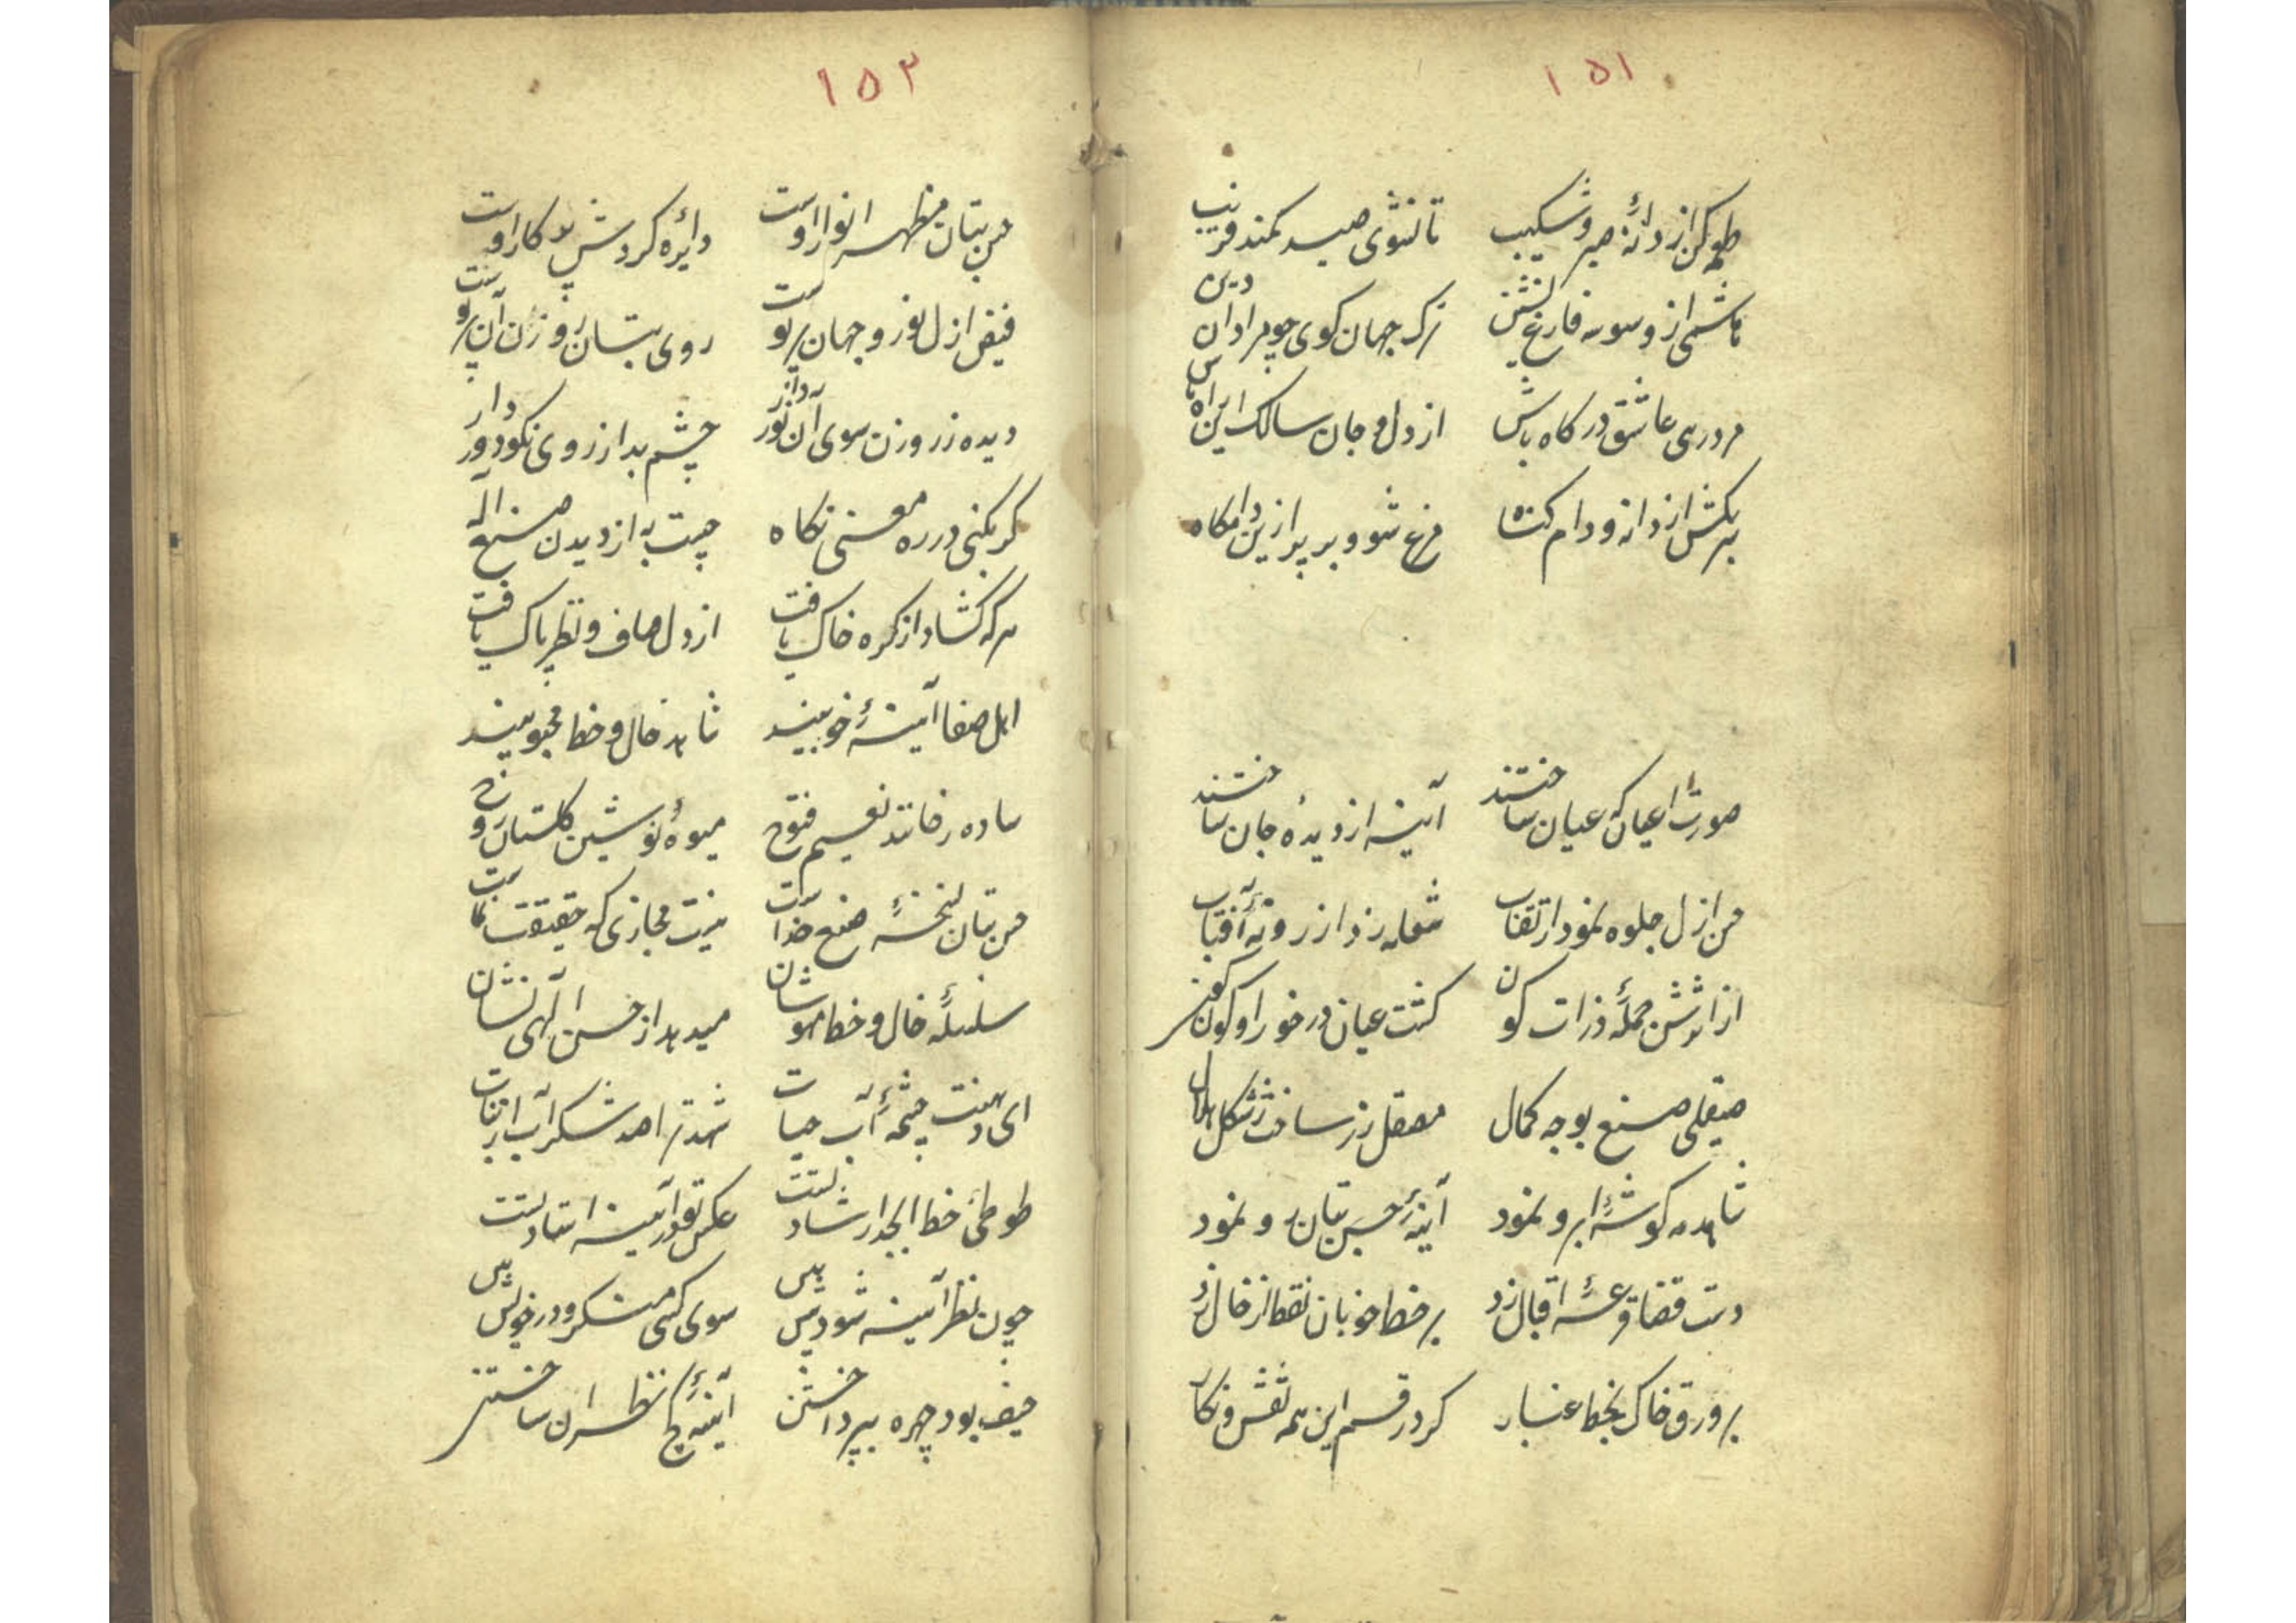 ۱۵۱
طعمه کن از دانهٔ صبر و شکیب تا نشوی صید کمند فریب
هاشمی از وسوسه فارغ نشین ترک جهان گوی چو مردان دین
در رهی عاشق درگاه باش از دل و جان سالک این راه باش
سر بکش از دانه و دام گناه مرغ شو و بر پر ازین دامگاه
صورت اعیان که عیان ساختند آینه از دیدهٔ جان ساختند
حسن ازل جلوه نمود از نقاب شعله زد از روزنهٔ آفتاب
از اثرش جملهٔ ذرات کون گشت عیان در خور او کون کون
صیقلی صنع بوجه کمال مصقل زر ساخت ز شکل هلال
شاهد مه گوشهٔ ابرو نمود آینهٔ حسن بتان رو نمود
دست قضا قرعهٔ اقبال زد بر خط خوبان نقط از خال زد
بر ورق خاک بخط غبار کرد رقم این همه نقش و نگار
۱۵۲
حسن بتان مظهر انوار اوست دایره گردش پرگار اوست
فیض ازل نور و جهان پرتوست روی بتان روزن آن پرتوست
دیده ز روزن سوی آن نور دار چشم بد از روی نکو دور دار
گر بکنی در ره معنی نگاه چیست به از دیدن صنع اله
هر که گشاد از گره خاک یافت از دل صاف و نظر پاک یافت
اهل صفا آینهٔ خوبیند شاهد خال و خط محبوبیند
ساده رخانند نعیم فتوح میوهٔ نوشین گلستان روح
حسن بتان نسخهٔ صنع خداست نیست مجازی که حقیقت نماست
سلسلهٔ خال و خط مهوشان میدهد از حسن الهی نشان
ای دهنت چشمهٔ آب حیات شهد تر آمد شکرآب از نبات
طوطی خط ابجد ارشاد تست عکس تو در آینه استاد تست
چون نظر آینه شود پیش بین سوی کسی منگر و در خویش بین
حیف بود چهره بپرداختن آینهٔ کج نظران ساختن